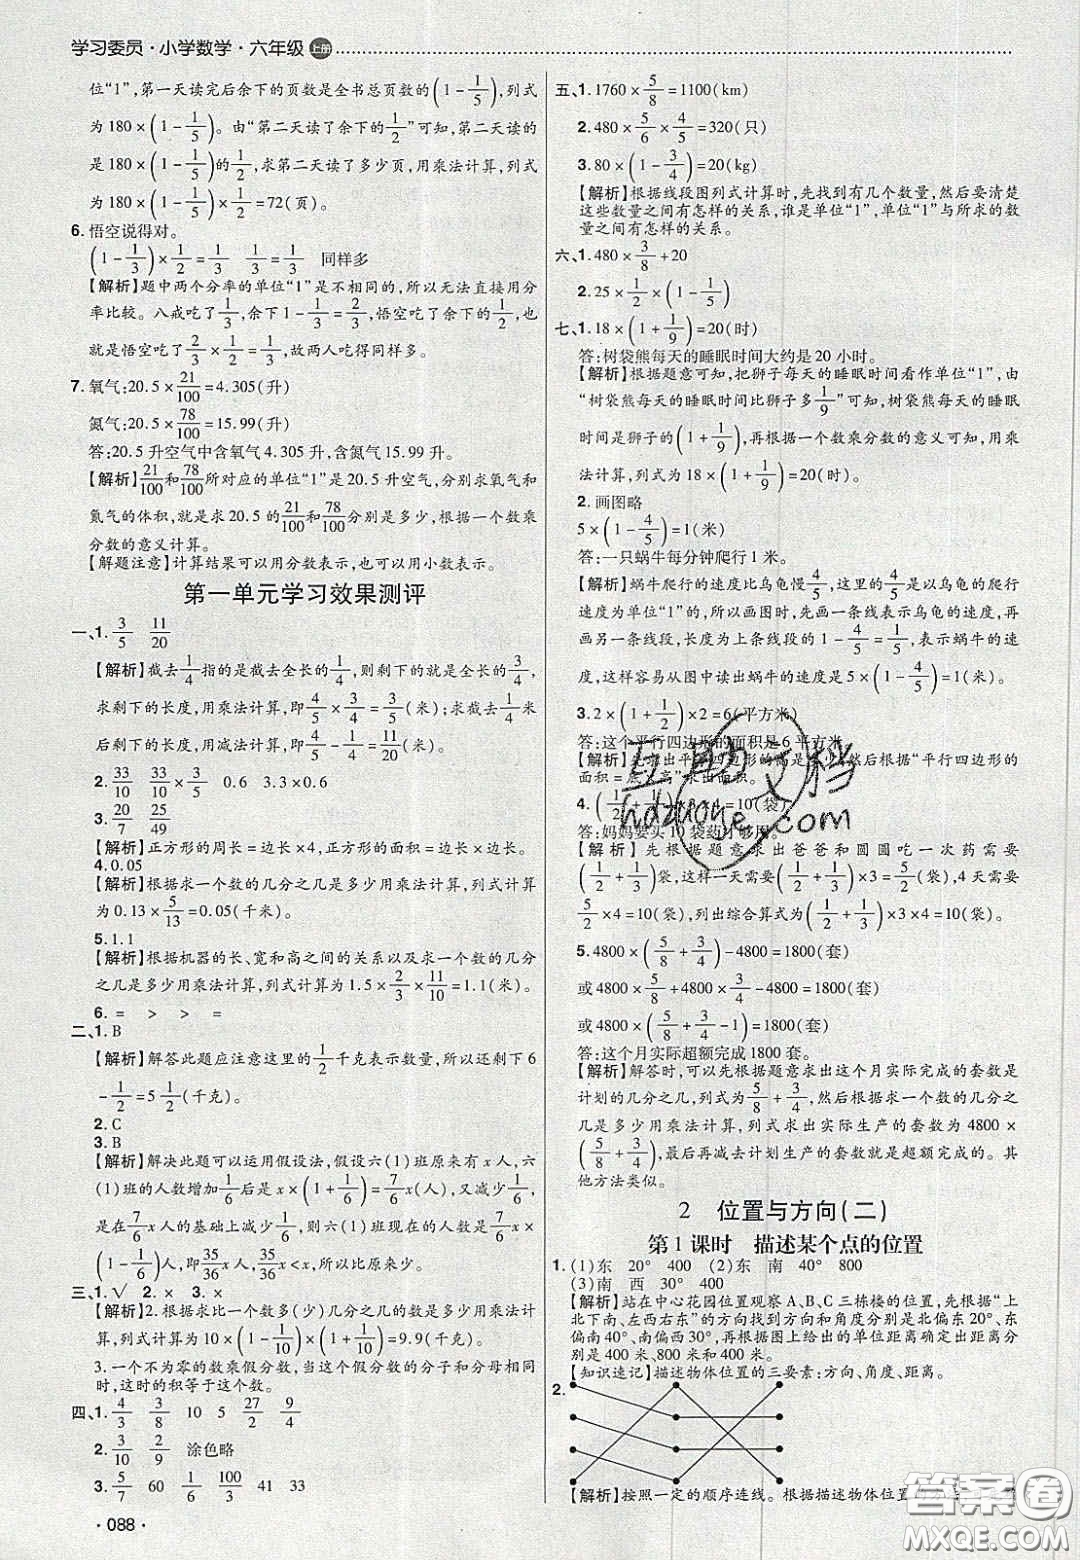 学习委员·小学数学·六年级 上册
位“1”,第一天读完后余下的页数是全书总页数的(1-1/5),列式
为180×(1-1/5)。由“第二天读了余下的1/2”可知,第二天读的
是180×(1-1/5)的1/2,求第二天读了多少页,用乘法计算,列式
为180×(1-1/5)×1/2=72(页)。
6.悟空说得对。
(1-1/3)×1/2=1/3 1/3=1/3 同样多
【解析】题中两个分率的单位“1”是不相同的,所以无法直接用分
率比较。八戒吃了1/3,余下1-1/3=2/3,悟空吃了余下的1/2,也
就是悟空吃了2/3×1/2=1/3,1/3=1/3,故两人吃得同样多。
7.氧气:20.5×21/100=4.305(升)
氮气:20.5×78/100=15.99(升)
答:20.5升空气中含氧气4.305升,含氮气15.99升。
【解析】21/100和78/100所对应的单位“1”是20.5升空气,分别求氧气和
氮气的体积,就是求20.5的21/100和78/100分别是多少,根据一个数乘
分数的意义计算。
【解题注意】计算结果可以用分数表示,也可以用小数表示。
第一单元学习效果测评
一、1.3/5 11/20
【解析】截去1/4指的是截去全长的1/4,则剩下的就是全长的3/4,
求剩下的长度,用乘法计算,即4/5×3/4=3/5(米);求截去1/4米
后剩下的长度,用减法计算,即4/5-1/4=11/20(米)。
2.33/10 33/10×3/5 0.6 3.3×0.6
3.20/7 25/49
【解析】正方形的周长=边长×4,正方形的面积=边长×边长。
4.0.05
【解析】根据求一个数的几分之几是多少用乘法计算,列式计算
为0.13×5/13=0.05(千米)。
5.1.1
【解析】根据机器的长、宽和高之间的关系,根据求一个数的几分
之几是多少用乘法计算,列式计算为1.5×2/3×11/10=1.1(米)。
6.= > > =
二、1.B
【解析】解答此题应注意这里的1/2千克表示数量,所以还剩下6
-1/2=5 1/2(千克)。
2.C
3.B
【解析】解决此题可以运用假设法,假设六(1)班原来有x人,六
(1)班的人数增加1/6后是x×(1+1/6)=7/6x(人),又减少1/6,
是在7/6x人的基础上减少1/6,则六(1)班现在的人数是7/6x
×(1-1/6)=35/36x(人),35/36x<x,所以是比原来减少了。
三、1.√ 2.× 3.×
【解析】2.根据求比一个数多(少)几分之几的数是多少用乘法计
算,列式计算为10×(1-1/10)×(1+1/10)=9.9(千克)。
3.一个不为零的数乘假分数,当这个假分数的分子和分母相同
时,这时的积等于这个数。
四、1.4/3 3/8 10 5 27/2 9/4
2.3/10 9/2 涂色略
3.5/7 60 1/6 100/3 41 33
·088·
五、1.1760×5/8=1100(km)
2.480×5/6×4/5=320(只)
3.80×(1-3/4)=20(kg)
【解析】根据线段图列式计算时,先找到有几个数量,然后要清楚
这些数量之间有怎样的关系,谁是单位“1”,单位“1”与所求的数
量之间有怎样的关系。
六、1.480×3/8+20
2.25×1/2×(1-1/5)
七、1.18×(1+1/9)=20(时)
答:树袋熊每天的睡眠时间大约是20小时。
【解析】根据题意可知,把狮子每天的睡眠时间看作单位“1”,由
“树袋熊每天的睡眠时间比狮子多1/9”可知,树袋熊每天的睡眠
时间是狮子的(1+1/9),根据一个数乘分数的意义可知,用乘
法计算,列式为18×(1+1/9)=20(时)
2.画图略
5×(1-4/5)=1(米)
答:一只蜗牛每分钟爬行1米。
【解析】蜗牛爬行的速度比乌龟慢4/5,这里的4/5是以乌龟的爬行
速度为单位“1”的,所以画图时,先画一条线表示乌龟的速度,再
画另一条线段,长度为上条线段的1-4/5=1/5,表示蜗牛的速
度,这样容易从图中读出蜗牛的速度是5×(1-4/5)=1(米)。
3.2×(1+1/2)×2=6(平方米)
答:这个平行四边形的面积是6平方米。
【解析】先求出平行四边形的高是多少,然后根据“平行四边形的
面积=底×高”求出面积。
4.(1/2+1/3)×3×4=10(袋)
答:妈妈要买10袋药才够用。
【解析】先根据题意求出爸爸和圆圆吃一次药需要
(1/2+1/3)袋,这样一天需要(1/2+1/3)×3=5/2(袋),4天需要
5/2×4=10(袋),列出综合算式为(1/2+1/3)×3×4=10(袋)。
5.4800×(5/8+3/4)-4800=1800(套)
或4800×5/8+4800×3/4-4800=1800(套)
或4800×(5/8+3/4-1)=1800(套)
答:这个月实际超额完成1800套。
【解析】可以先根据题意求出这个月实际完成的套数是
计划的几分之几,列式为5/8+3/4,然后根据求一个数的几分之几
是多少用乘法计算,列式求出实际生产的套数为4800×
(5/8+3/4),最后再减去计划生产的套数就是超额完成的。其
他方法类似。
2 位置与方向(二)
第1课时 描述某个点的位置
1.(1)东 20° 400 (2)东 南 40° 800
(3)南 西 30° 400
【解析】站在中心花园位置观察A、B、C三栋楼的位置,根据“上
北下南、左西右东”的方向找到方向和角度分别是北偏东20°、东
偏南40°、南偏西30°,根据图上给出的单位距离确定出距离分别
是400米、800米和400米。
【知识速记】描述物体位置的三要素:方向、角度、距离。
2.
【解析】按照一定的顺序连线。根据描述物体位置的
互助文档
hdzuoye.com
答案圈
MXQE.COM